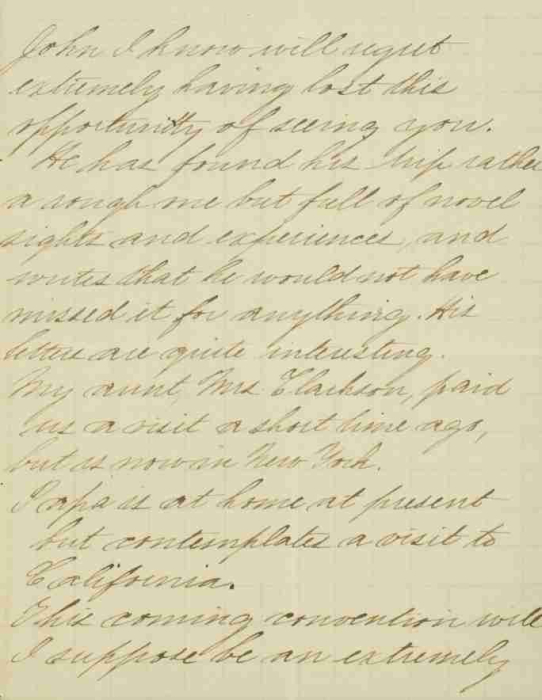 John I know will regret
extremely having lost this
opportunity of seeing you.
He has found his trip rather
a rough one but full of novel
sights and experiences, and
writes that he would not have
missed it for anything. His
letters are quite interesting.
My aunt, Mrs. Clarkson, paid
us a visit a short time ago,
but is now in New York.
Papa is at home at present
but contemplates a visit to
California.
This coming convention will
I suppose be an extremely